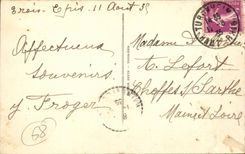 Trois-Epis. 11 Août 35
Affectueux
souvenirs
Y. Froger
Madame
A. Lefort
Cheffes s/ Sarthe
Maine et Loire
68